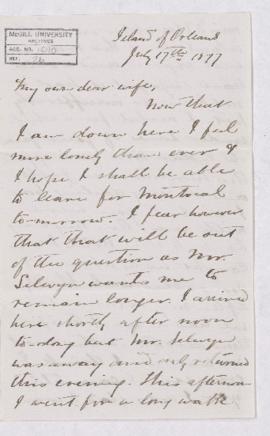 McGILL UNIVERSITY
ARCHIVES
ACC. NO.
REF.
Island of Orleans
July 17th 1877
My own dear wife,
Now that
I am down here I feel
more lonely than ever &
I hope I shall be able
to leave for Montreal
to-morrow. I fear however
that that will be out
of the question as Mr.
Selwyn wants me to
remain longer. I arrived
here shortly after noon
to-day but Mr. Selwyn
was away and only returned
this evening. This afternoon
I went for a long walk